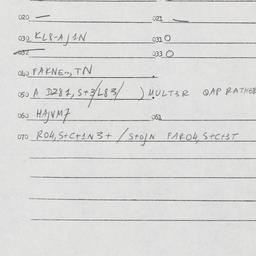 020 — 021 —
030 KL8-AJ1N 031 0
032 033 0
040 FAKNE~, TN
050 A DZ81, S+3/L83/ ) MULT3R QAP RATHER
060 HAJVM7 061
070 R04, S+C+1N3+ / S+0JN FAR04, S+C+3T